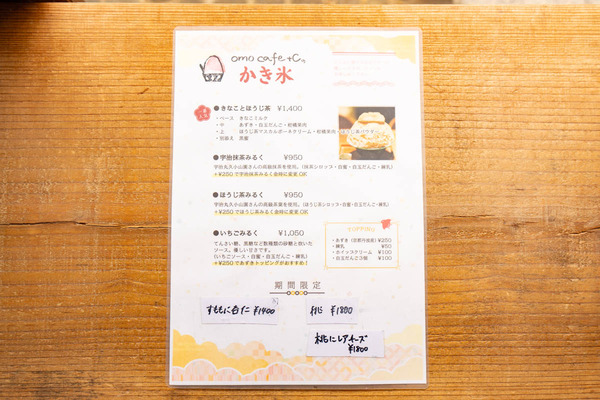 omo cafe +C。
かき氷
●きなことほうじ茶 ¥1,400
・ベース きなこミルク
・中 あずき・白玉だんご・柑橘果肉
・上 ほうじ茶マスカルポーネクリーム・柑橘果肉・ほうじ茶パウダー
・別添え 黒蜜
●宇治抹茶みるく ¥950
宇治丸久小山園さんの高級抹茶を使用。(抹茶シロップ・白蜜・白玉だんご・練乳)
+¥250で宇治抹茶みるく金時に変更OK
●ほうじ茶みるく ¥950
宇治丸久小山園さんの高級茶葉を使用。(ほうじ茶シロップ・白蜜・白玉だんご・練乳)
+¥250でほうじ茶みるく金時に変更OK
●いちごみるく ¥1,050
てんさい糖、黒糖など数種類の砂糖と炊いた
ソース。優しい甘さです。
(いちごソース・白蜜・白玉だんご・練乳)
+¥250であずきトッピングがおすすめ!
TOPPING
・あずき(京都丹波産) ¥250
・練乳 ¥50
・ホイップクリーム ¥100
・白玉だんご3個 ¥100
期間限定
すももに白だ ¥1400
桃 ¥1800
桃にレアチーズ
¥1800